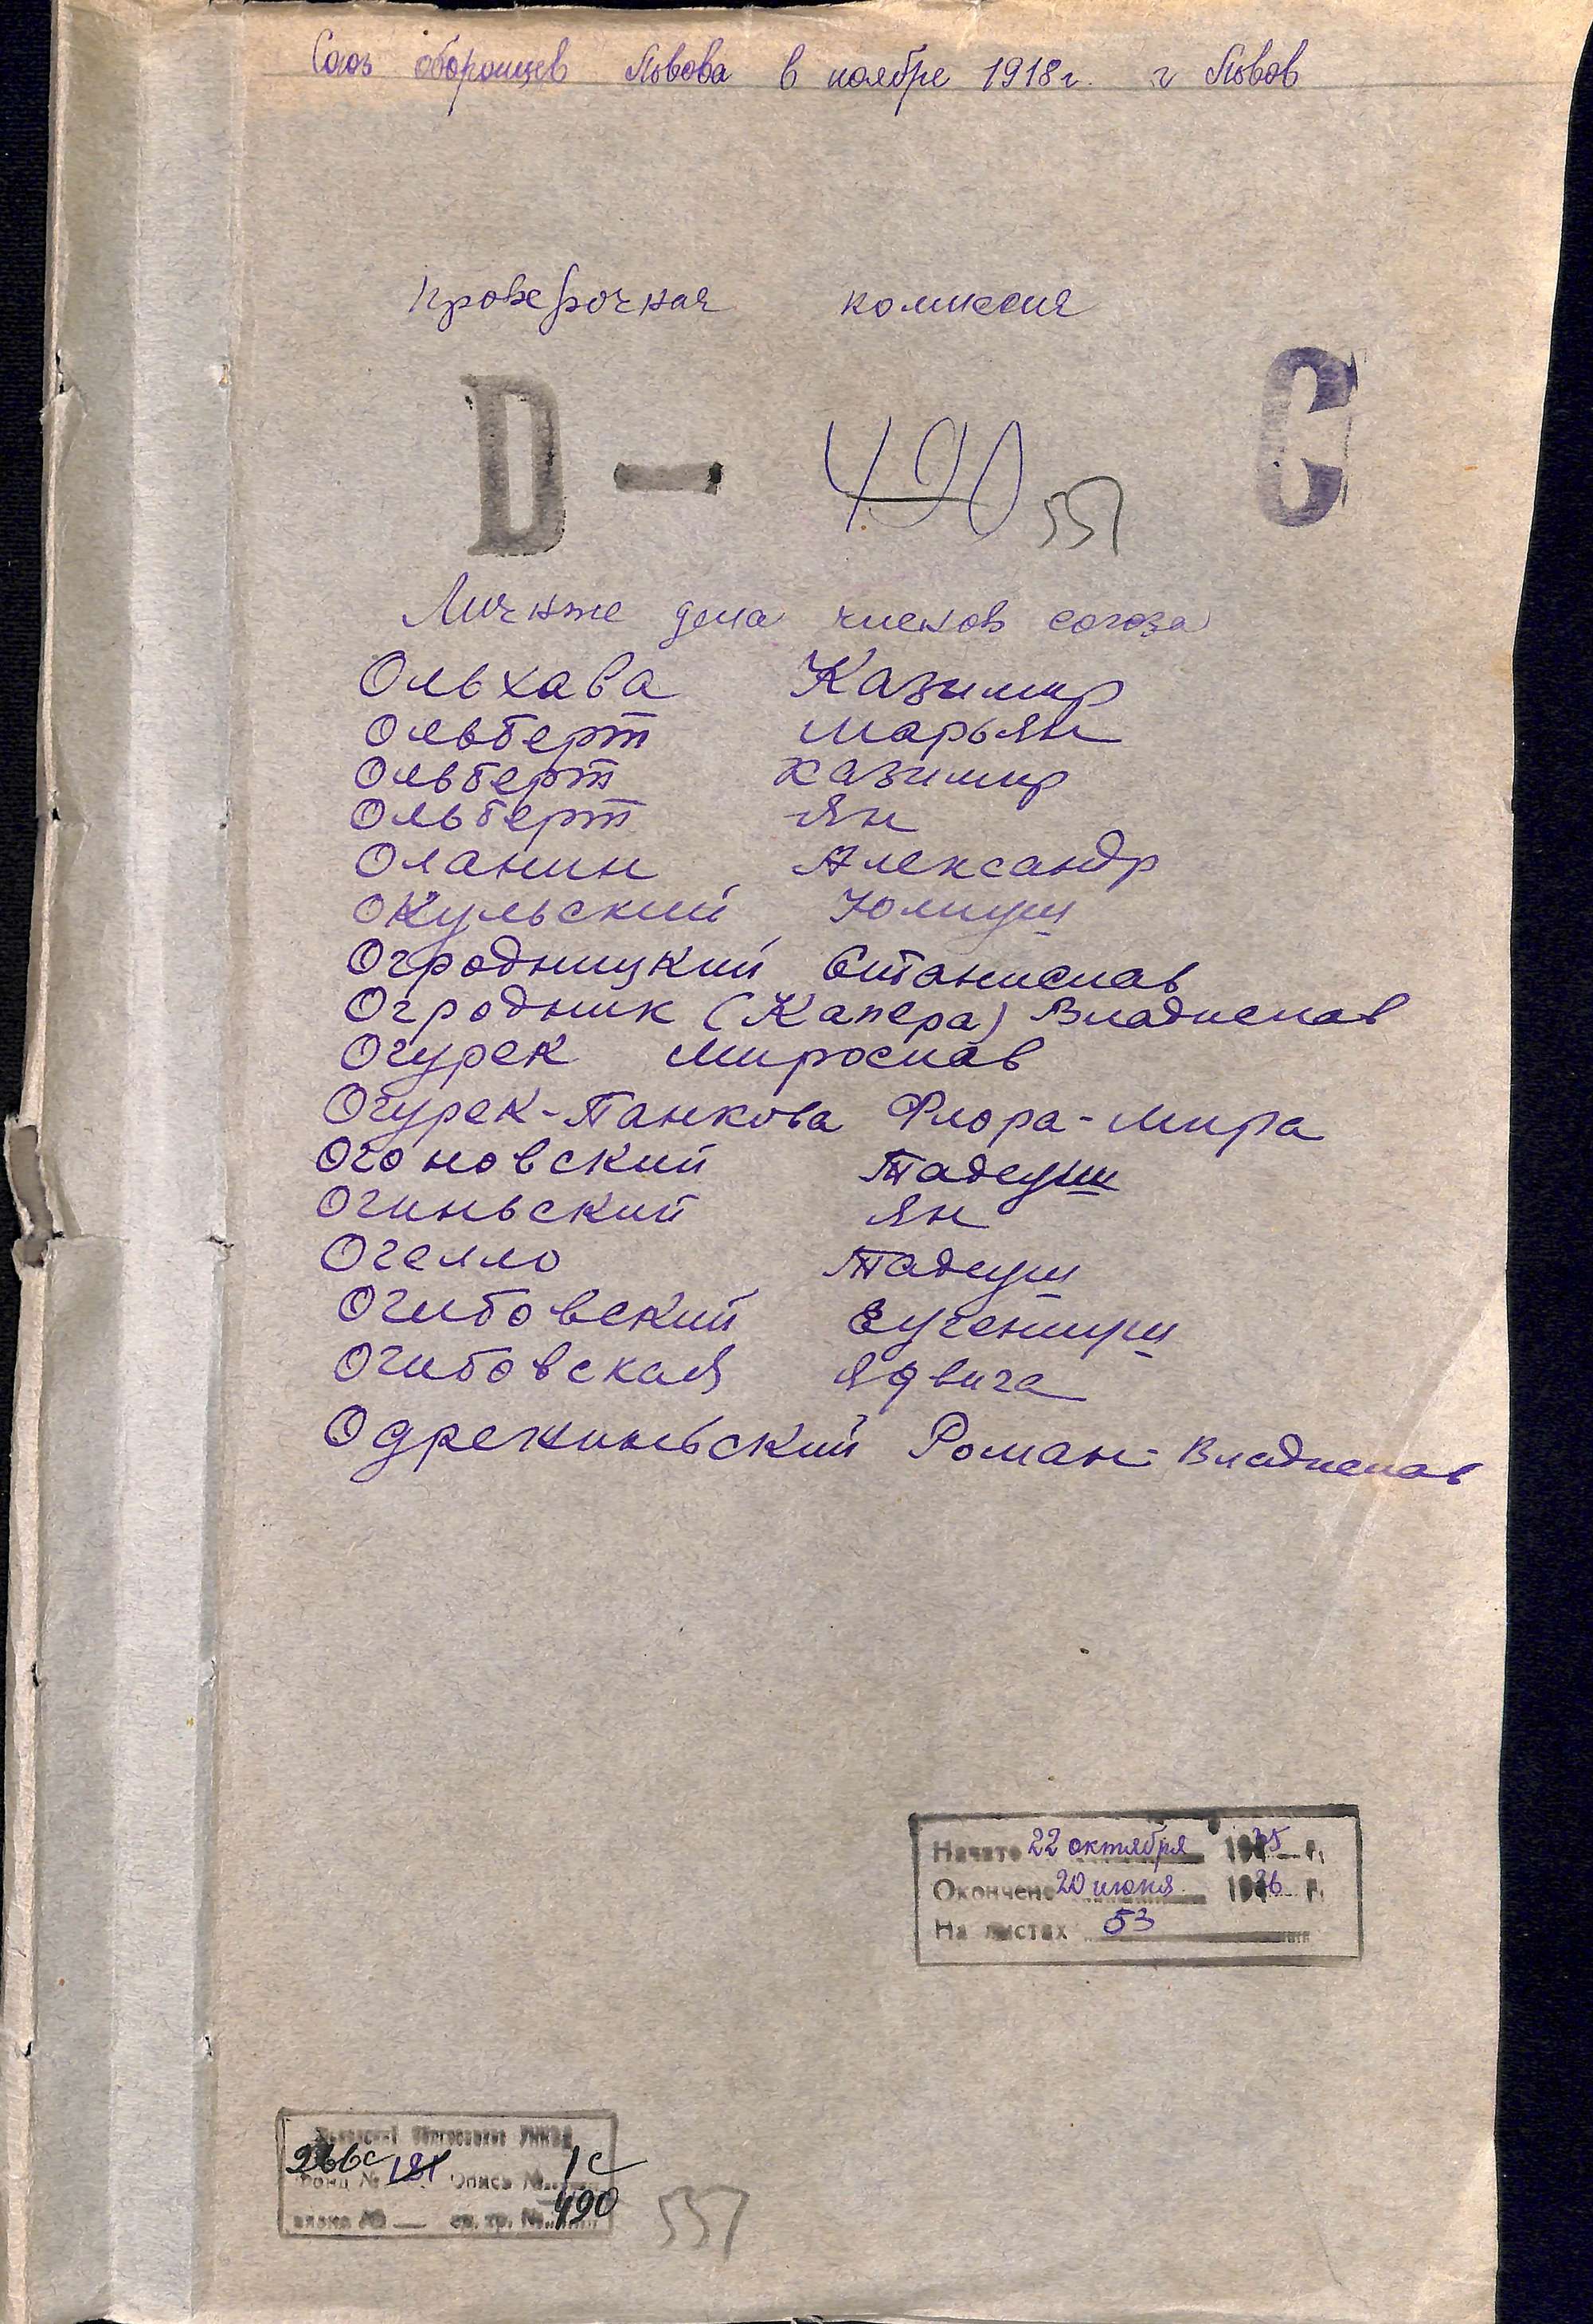 Союз оборонцев Львова в ноябре 1918 г. г Львов
Проверочная комиссия
D — 490 557 C
Личные дела членов союза
Ольхава Казимир
Ольберт Марьян
Ольберт Казимир
Ольберт Ян
Оланин Александр
Окульский Юлиуш
Огродницкий Станислав
Огродник (Капера) Владислав
Огурек Мирослав
Огурек-Панкова Флора-Мира
Огоновский Тадеуш
Огиньский Ян
Огелло Тадеуш
Огибовский Еугениуш
Огибовская Ядвига
Одреживьский Роман-Владислав
Начато 22 октября 1925 г.
Окончено 20 июня 1926 г.
На листах 53
УНКВД
266с
Фонд № 181 Опись № 1с
ед. хр. № 490
557